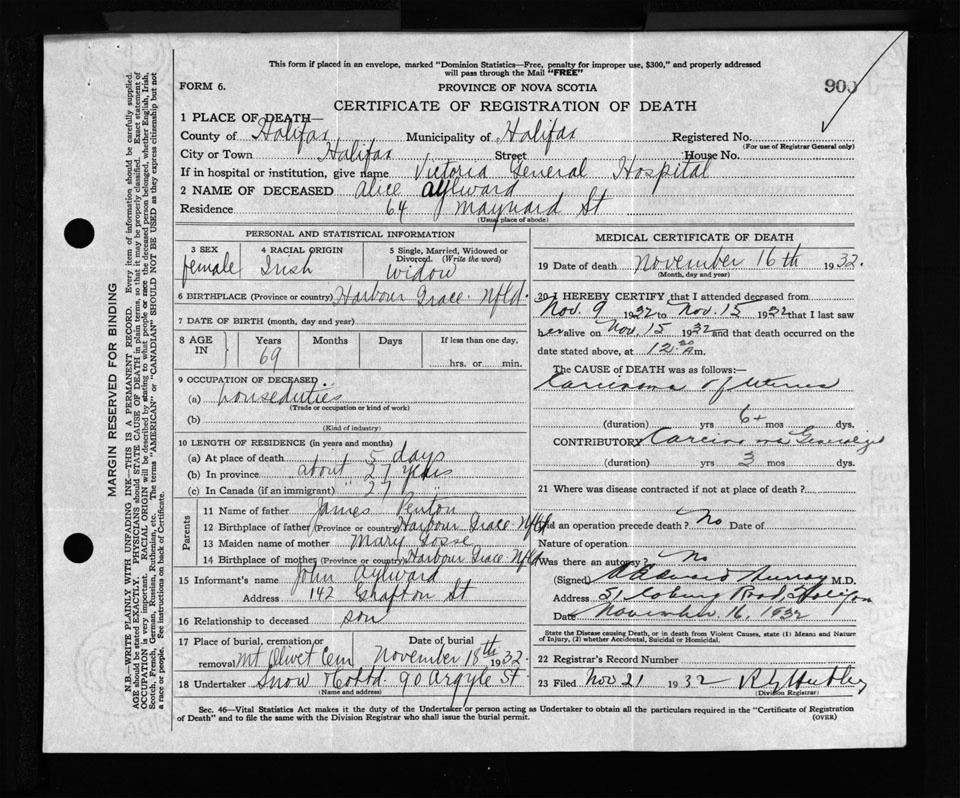 This form if placed in an envelope, marked "Dominion Statistics—Free, penalty for improper use, $300," and properly addressed
will pass through the Mail "FREE"
FORM 6.
PROVINCE OF NOVA SCOTIA
900
CERTIFICATE OF REGISTRATION OF DEATH
1 PLACE OF DEATH—
County of Halifax Municipality of Halifax Registered No.
(For use of Registrar General only)
City or Town Halifax Street House No.
If in hospital or institution, give name Victoria General Hospital
2 NAME OF DECEASED Alice Aylward
Residence 64 Maynard St
(Usual place of abode)
PERSONAL AND STATISTICAL INFORMATION
3 SEX 4 RACIAL ORIGIN 5 Single, Married, Widowed or
Divorced. (Write the word)
female Irish widow
6 BIRTHPLACE (Province or country) Harbour Grace Nfld.
7 DATE OF BIRTH (month, day and year)
8 AGE IN Years Months Days If less than one day,
69 hrs. or min.
9 OCCUPATION OF DECEASED
(a) houseduties
(Trade or occupation or kind of work)
(b)
(Kind of industry)
10 LENGTH OF RESIDENCE (in years and months)
(a) At place of death 5 days
(b) In province about 27 years
(c) In Canada (if an immigrant) " 27 "
Parents
11 Name of father James Penton
12 Birthplace of father (Province or country) Harbour Grace Nfld
13 Maiden name of mother Mary Gosse
14 Birthplace of mother (Province or country) Harbour Grace Nfld
15 Informant's name John Aylward
Address 142 Grafton St
16 Relationship to deceased son
17 Place of burial, cremation or Date of burial
removal Mt Olivet Cem November 18th 1932
18 Undertaker Snow & Co Ltd 90 Argyle St
(Name and address)
MEDICAL CERTIFICATE OF DEATH
19 Date of death November 16th 1932.
(Month, day and year)
20 I HEREBY CERTIFY that I attended deceased from
Nov. 9 1932 to Nov. 15 1932 that I last saw
her alive on Nov. 15 1932 and that death occurred on
date stated above, at 12.30 A.m.
The CAUSE of DEATH was as follows:
Carcinoma of Uterus
(duration) yrs 6+ mos dys.
CONTRIBUTORY Carcinoma Generalized
(duration) yrs 3 mos dys.
21 Where was disease contracted if not at place of death?
Did an operation precede death? No Date of
Nature of operation
Was there an autopsy? No
(Signed) Murray M.D.
Address 51 Coburg Road, Halifax
Date November 16, 1932
State the Disease causing Death, or in death from Violent Causes, state (1) Means and Nature
of Injury, (2) whether Accidental, Suicidal or Homicidal.
22 Registrar's Record Number
23 Filed Nov 21 1932
(Division Registrar)
Sec. 46—Vital Statistics Act makes it the duty of the Undertaker or person acting as Undertaker to obtain all the particulars required in the "Certificate of Registration
of Death" and to file the same with the Division Registrar who shall issue the burial permit. (OVER)
MARGIN RESERVED FOR BINDING
N.B.—WRITE PLAINLY WITH UNFADING INK—THIS IS A PERMANENT RECORD. Every item of information should be carefully supplied.
AGE should be stated EXACTLY. PHYSICIANS should STATE CAUSE OF DEATH in plain terms, so that it may be properly classified. Exact statement of
OCCUPATION is very important. RACIAL ORIGIN will be described by stating to what people or race the deceased person belonged, whether English, Irish,
Scotch, French, German, Russian, Ruthenian, etc. The terms "AMERICAN" or "CANADIAN" SHOULD NOT BE USED as they express citizenship but not
a race or people. See instructions on back of Certificate.